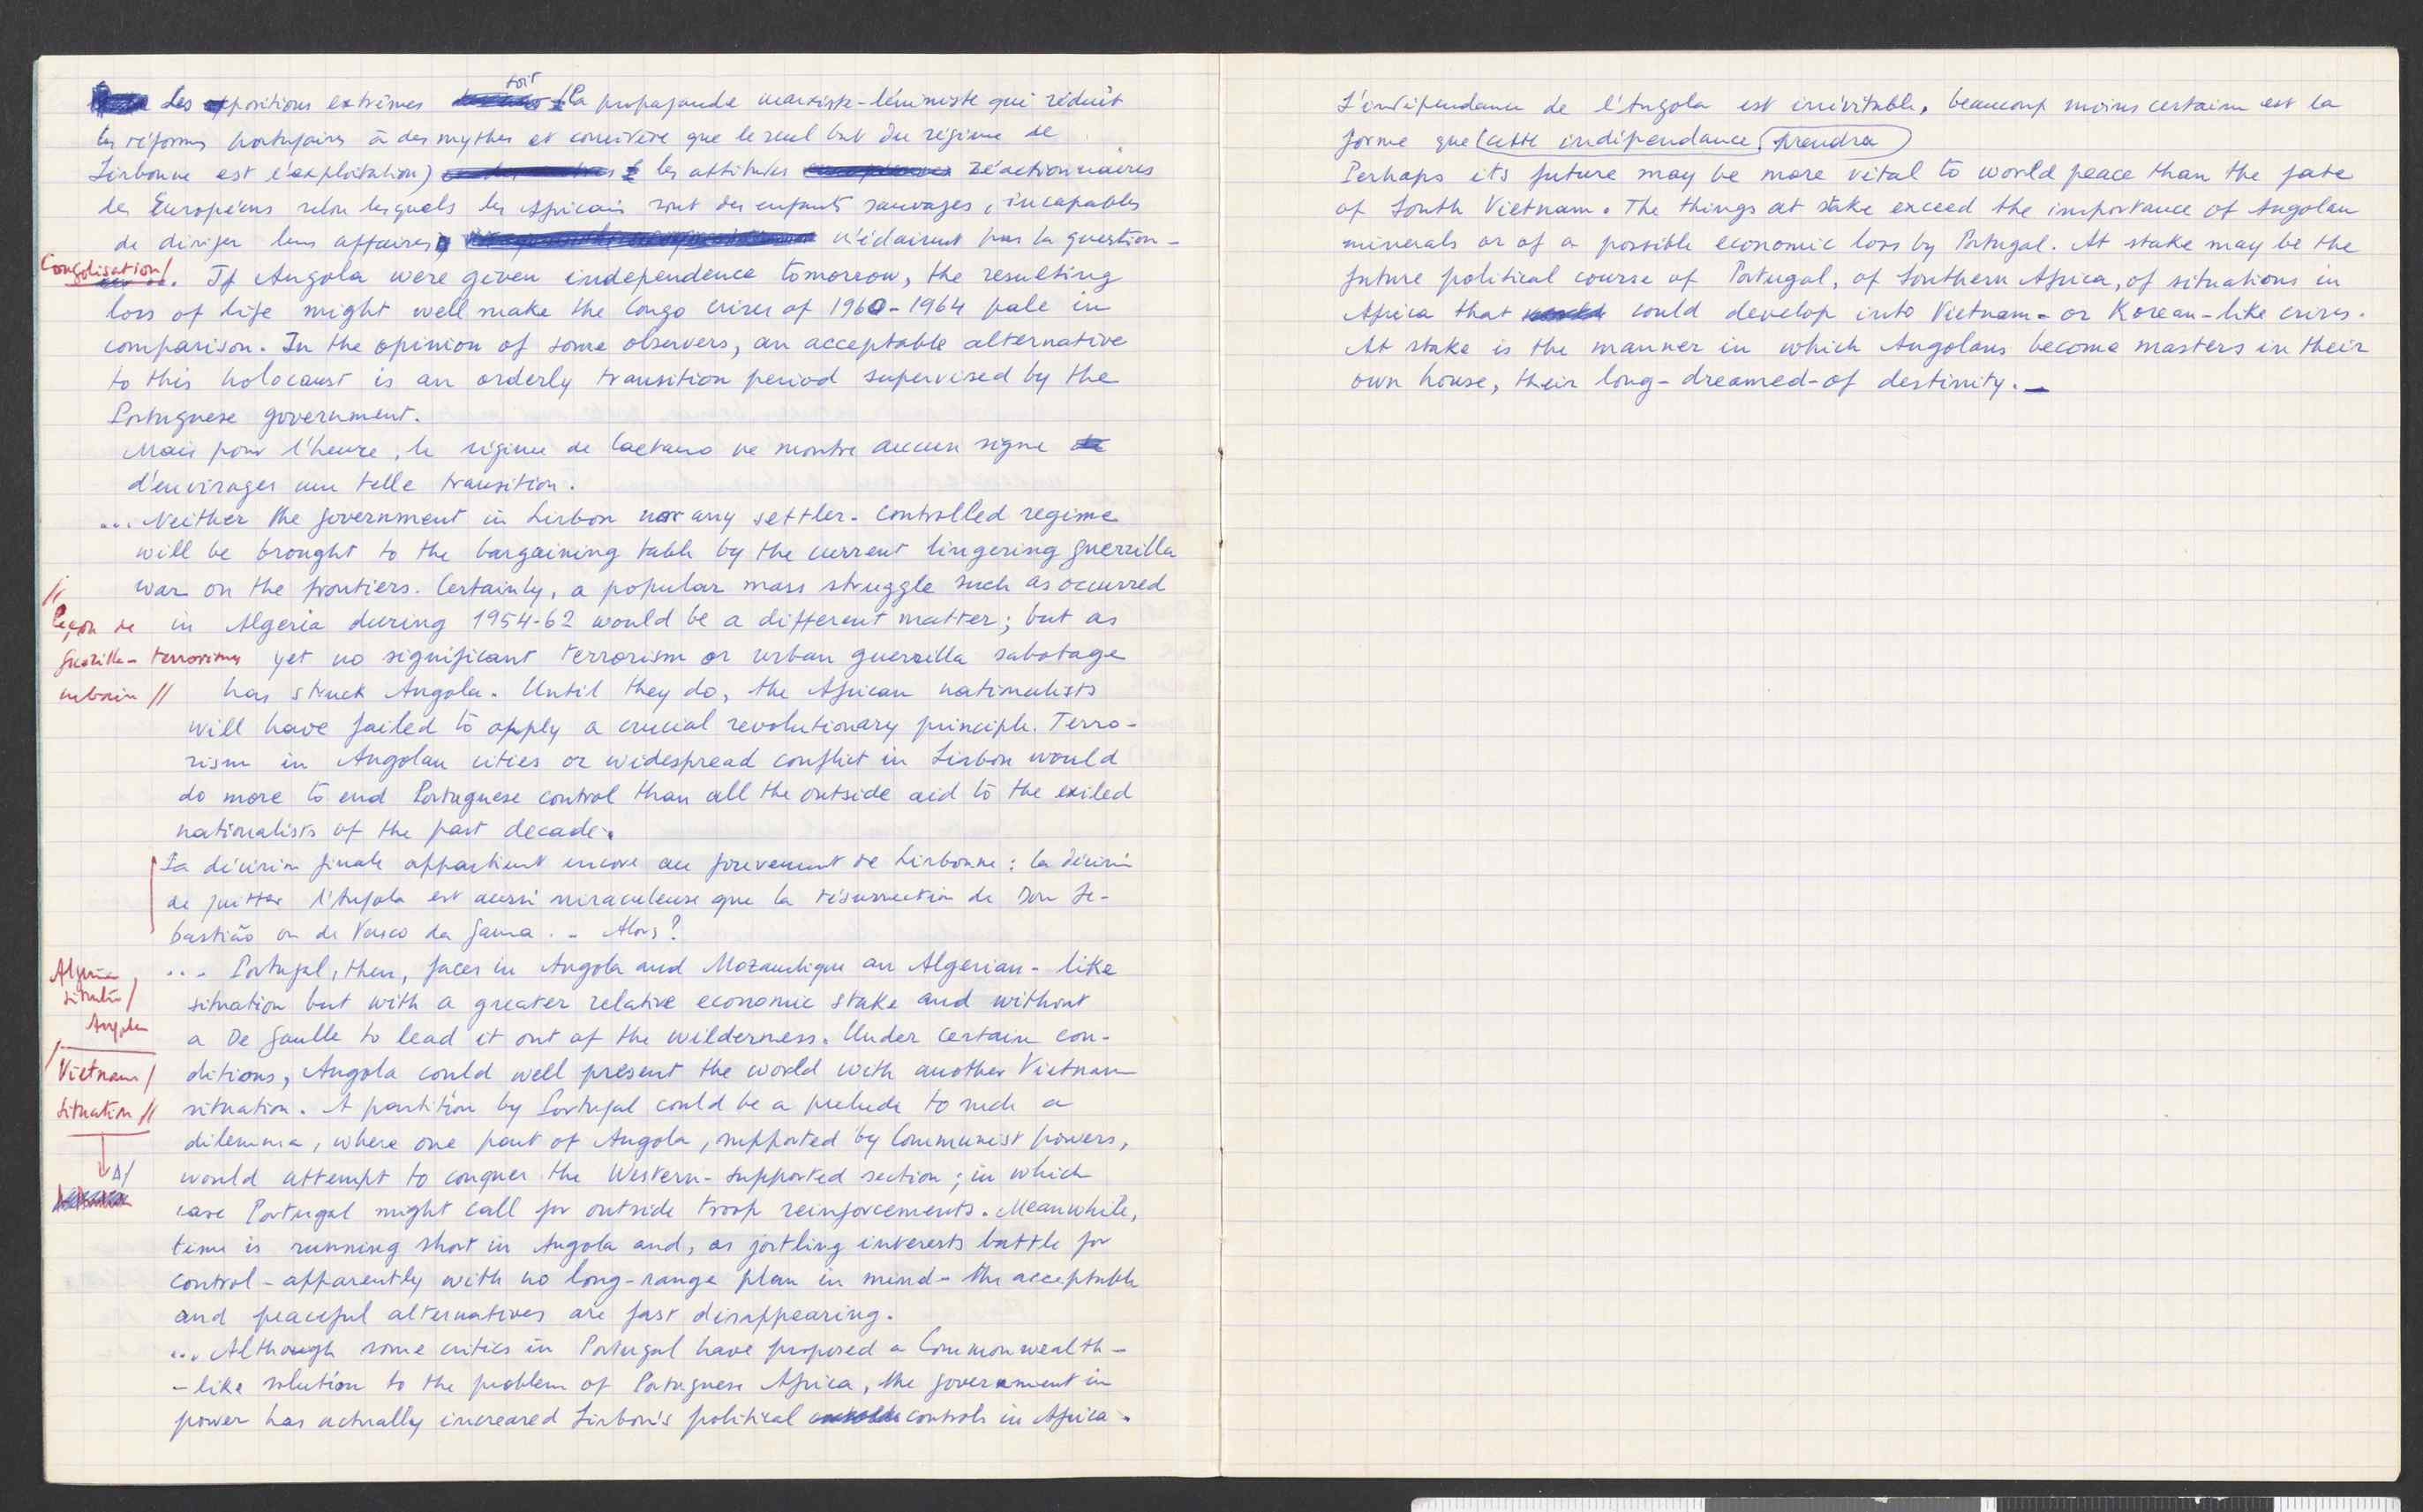 Les positions extrêmes soit (la propagande marxiste-léniniste qui réduit
les réformes portugaises à des mythes et considère que le seul but du régime de
Lisbonne est l'exploitation) les attitudes réactionnaires
des Européens selon lesquels les Africains sont des enfants sauvages, incapables
de diriger leurs affaires, n'éclairent pas la question -
Congolisation/
. If Angola were given independence tomorrow, the resulting
loss of life might well make the Congo crises of 1960-1964 pale in
comparison. In the opinion of some observers, an acceptable alternative
to this holocaust is an orderly transition period supervised by the
Portuguese government.
Mais pour l'heure, le régime de Caetano ne montre aucun signe
d'envisager une telle transition.
... Neither the government in Lisbon nor any settler-controlled regime
will be brought to the bargaining table by the current lingering guerrilla
war on the frontiers. Certainly, a popular mass struggle such as occurred
//
Leçon de
in Algeria during 1954-62 would be a different matter; but as
guérilla-terrorisme
yet no significant terrorism or urban guerrilla sabotage
urbain //
has struck Angola. Until they do, the African nationalists
will have failed to apply a crucial revolutionary principle. Terro-
rism in Angolan cities or widespread conflict in Lisbon would
do more to end Portuguese control than all the outside aid to the exiled
nationalists of the past decade.
La décision finale appartient encore au gouvernement de Lisbonne : la décision
de quitter l'Angola est aussi miraculeuse que la résurrection de Don Se-
bastião ou de Vasco da Gama. - Alors?
Algeria
situation/
Angola
... Portugal, then, faces in Angola and Mozambique an Algerian-like
situation but with a greater relative economic stake and without
a De Gaulle to lead it out of the wilderness. Under certain con-
Vietnam/
situation //
Δ/
ditions, Angola could well present the world with another Vietnam
situation. A partition by Portugal could be a prelude to such a
dilemma, where one part of Angola, supported by Communist powers,
would attempt to conquer the Western-supported section; in which
case Portugal might call for outside troop reinforcements. Meanwhile,
time is running short in Angola and, as jostling interests battle for
control - apparently with no long-range plan in mind - the acceptable
and peaceful alternatives are fast disappearing.
... Although some critics in Portugal have proposed a Commonwealth-
-like solution to the problem of Portuguese Africa, the government in
power has actually increased Lisbon's political controls in Africa.
L'indépendance de l'Angola est inévitable, beaucoup moins certaine est la
forme que (cette indépendance) (prendra)
Perhaps its future may be more vital to world peace than the fate
of South Vietnam. The things at stake exceed the importance of Angolan
minerals or of a possible economic loss by Portugal. At stake may be the
future political course of Portugal, of Southern Africa, of situations in
Africa that could develop into Vietnam- or Korean-like crises.
At stake is the manner in which Angolans become masters in their
own house, their long-dreamed-of destinity. -